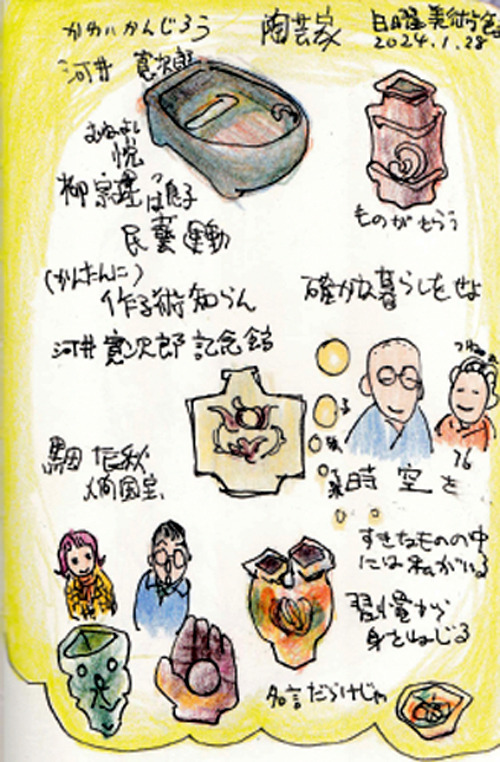 かわいかんじろう
陶芸家
日曜美術館
2024.1.28
河井 寛次郎
むねよし
悦
柳 宗理は息子
民藝運動
ものがもらう
(かんたんに)
作る術知らん
確かな暮らしをせよ
河井寛次郎記念館
黒田辰秋
人間国宝
76
時空を
すきなものの中
には私がいる
習慣から
身をねじる
名言だらけじゃ